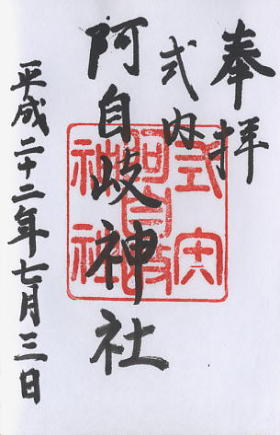 奉拝
式内
阿自岐神社
平成二十二年七月三日
式内
阿自岐
神社